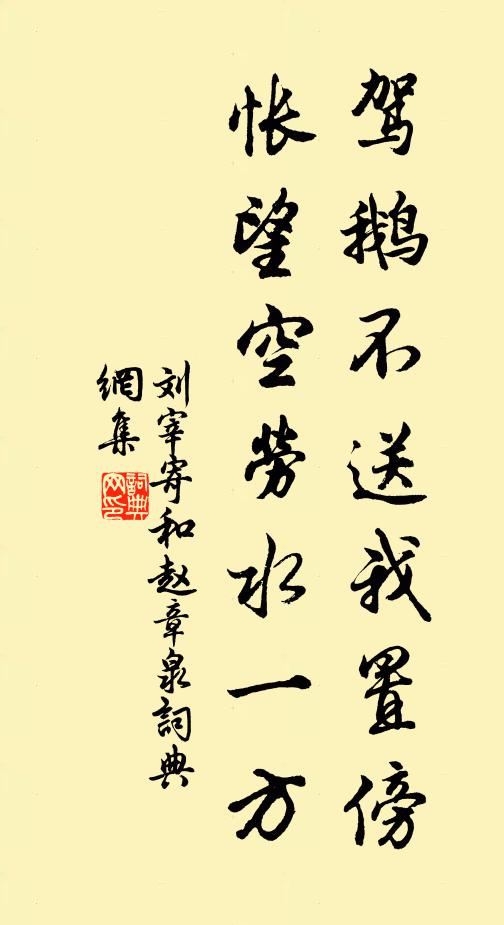 驾鹅不送我置傍
怅望空劳水一方
刘宰寄和赵章泉詞典
網集
詞典
网印